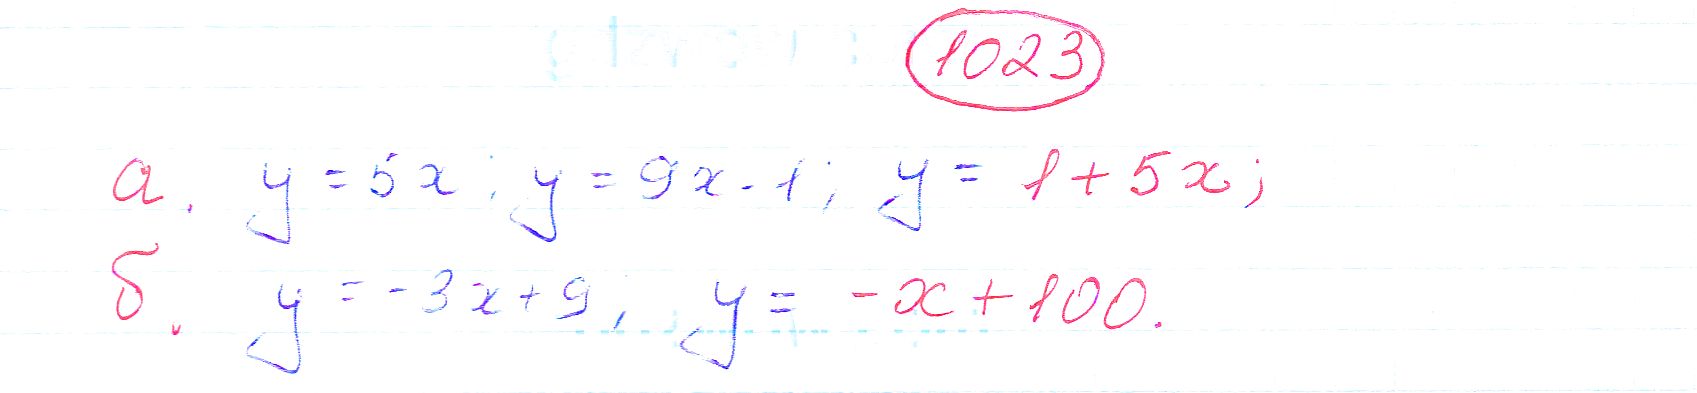 1023
а. y = 5x; y = 9x - 1; y = 1 + 5x;
б. y = -3x + 9, y = -x + 100.